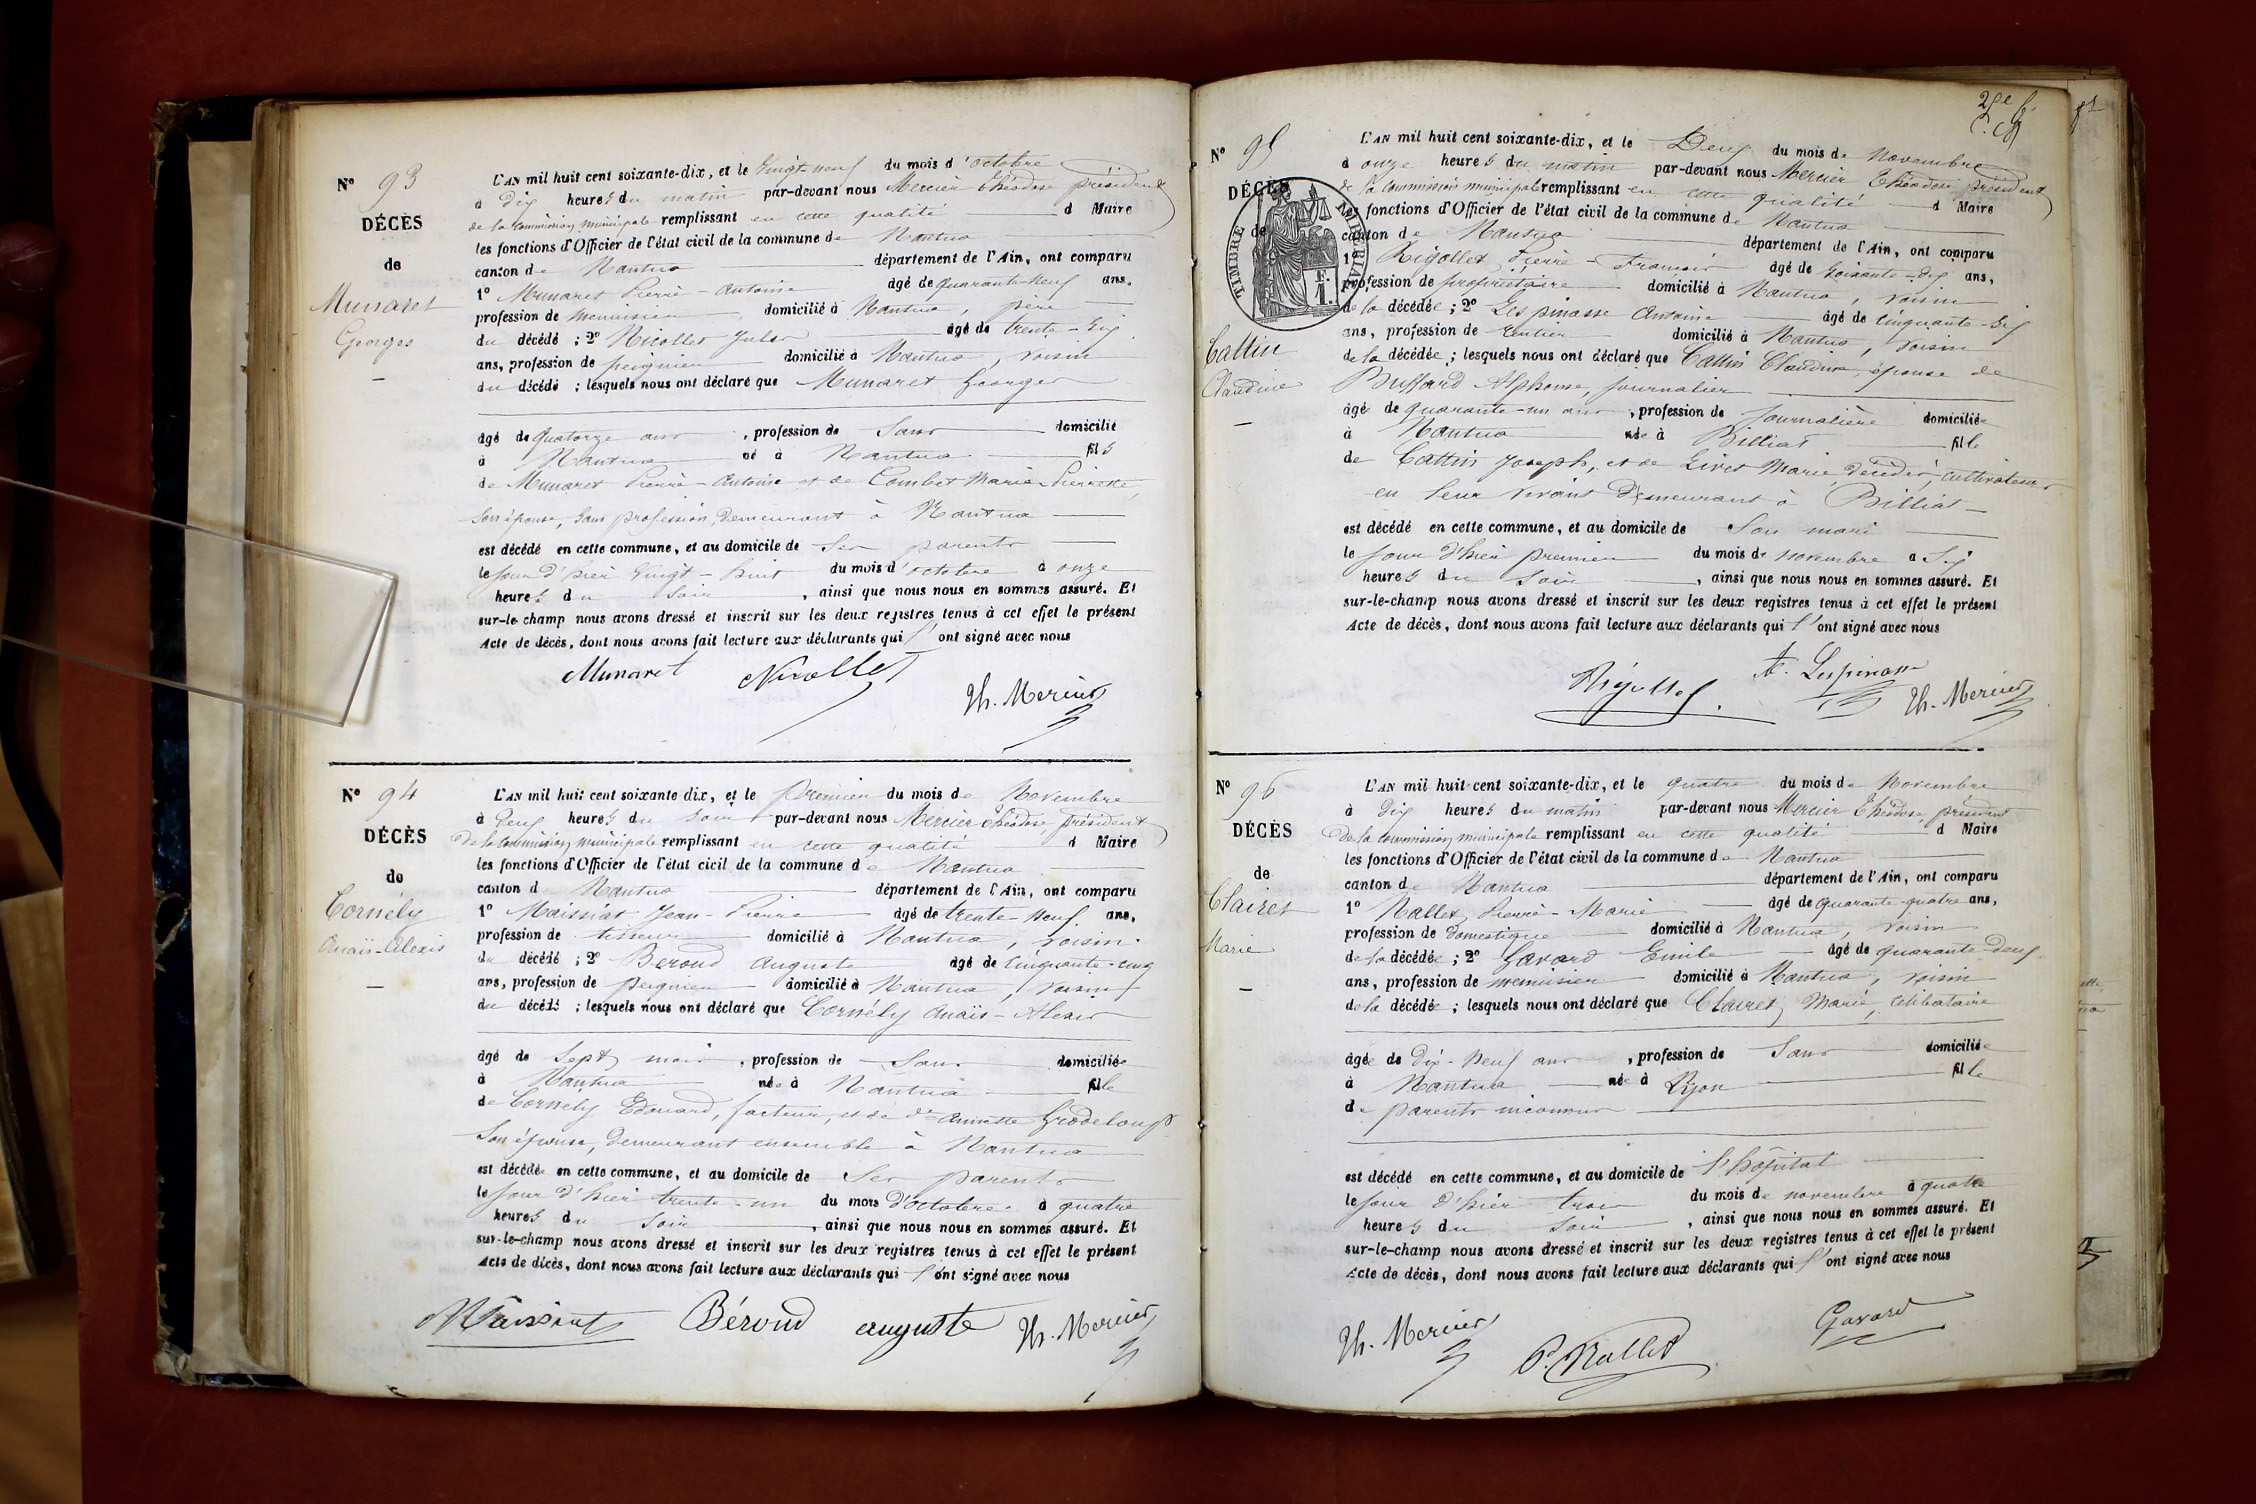 N° 93
DÉCÈS
de
Munaret
Georges
L'AN mil huit cent soixante-dix, et le vingt neuf du mois d'octobre
à dix heures du matin par-devant nous Mercier Théodose président
de la commission municipale remplissant en cette qualité d Maire
les fonctions d'Officier de l'état civil de la commune de Nantua
canton de Nantua département de l'Ain, ont comparu
1° Munaret Pierre-Antoine âgé de quarante-neuf ans,
profession de menuisier domicilié à Nantua, père
du décédé ; 2° Nicollet Jules âgé de trente-six
ans, profession de peignier domicilié à Nantua, voisin
du décédé ; lesquels nous ont déclaré que Munaret Georges
âgé de quatorze ans, profession de sans domicilié
à Nantua né à Nantua fils
de Munaret Pierre-Antoine et de Combet Marie-Pierrette,
son épouse, sans profession, demeurant à Nantua
est décédé en cette commune, et au domicile de ses parents
le jour d'hier vingt-huit du mois d'octobre à onze
heures du soir, ainsi que nous nous en sommes assuré. Et
sur-le-champ nous avons dressé et inscrit sur les deux registres tenus à cet effet le présent
Acte de décès, dont nous avons fait lecture aux déclarants qui l'ont signé avec nous
Munaret Nicollet
Th. Mercier
N° 94
DÉCÈS
de
Cornély
Anaïs-Alexis
L'AN mil huit cent soixante dix, et le premier du mois de Novembre
à deux heures du soir par-devant nous Mercier Théodose, président
de la commission municipale remplissant en cette qualité d Maire
les fonctions d'Officier de l'état civil de la commune de Nantua
canton de Nantua département de l'Ain, ont comparu
1° Maissiat Jean-Pierre âgé de trente-neuf ans,
profession de tisseur domicilié à Nantua, voisin
du décédé ; 2° Beroud Auguste âgé de cinquante-cinq
ans, profession de peignier domicilié à Nantua, voisin
du décédé ; lesquels nous ont déclaré que Cornély Anaïs-Alexis
âgé de sept mois, profession de sans domiciliée
à Nantua née à Nantua fille
de Cornely Edouard, facteur, et de de Annette Grodeloup
son épouse, demeurant ensemble à Nantua
est décédée en cette commune, et au domicile de ses parents
le jour d'hier trente-un du mois d'octobre à quatre
heures du soir, ainsi que nous nous en sommes assuré. Et
sur-le-champ nous avons dressé et inscrit sur les deux registres tenus à cet effet le présent
Acte de décès, dont nous avons fait lecture aux déclarants qui l'ont signé avec nous
Maissiat Béroud auguste Th. Mercier
N° 95
DÉCÈS
de
TIMBRE IMPÉRIAL
1 F.
Cattin
Claudine
L'AN mil huit cent soixante-dix, et le Deux du mois de Novembre
à onze heures du matin par-devant nous Mercier Théodose président
de la commission municipale remplissant en cette qualité d Maire
les fonctions d'Officier de l'état civil de la commune de Nantua
canton de Nantua département de l'Ain, ont comparu
1° Rigollet Pierre-François âgé de soixante-dix ans,
profession de propriétaire domicilié à Nantua, voisin
de la décédée ; 2° Lespinasse Antoine âgé de cinquante-six
ans, profession de rentier domicilié à Nantua, voisin
de la décédée ; lesquels nous ont déclaré que Cattin Claudine, épouse de
Buffard Alphonse, journalier
âgée de quarante-un ans, profession de journalière domiciliée
à Nantua née à Billiat fille
de Cattin Joseph, et de Livet Marie, décédés, cultivateurs
en leur vivant demeurant à Billiat
est décédé en cette commune, et au domicile de son mari
le jour d'hier premier du mois de novembre à six
heures du soir, ainsi que nous nous en sommes assuré. Et
sur-le-champ nous avons dressé et inscrit sur les deux registres tenus à cet effet le présent
Acte de décès, dont nous avons fait lecture aux déclarants qui l'ont signé avec nous
Rigollet A. Lespinasse Th. Mercier
N° 96
DÉCÈS
de
Clairet
Marie
L'AN mil huit cent soixante-dix, et le quatre du mois de Novembre
à dix heures du matin par-devant nous Mercier Théodose, président
de la commission municipale remplissant en cette qualité d Maire
les fonctions d'Officier de l'état civil de la commune de Nantua
canton de Nantua département de l'Ain, ont comparu
1° Nallet Pierre-Marie âgé de quarante-quatre ans,
profession de domestique domicilié à Nantua, voisin
de la décédée ; 2° Gavard Emile âgé de quarante-deux
ans, profession de menuisier domicilié à Nantua, voisin
de la décédée ; lesquels nous ont déclaré que Clairet Marie, célibataire
âgée de dix-neuf ans, profession de sans domiciliée
à Nantua née à Lyon fille
de parents inconnus
est décédé en cette commune, et au domicile de l'hôpital
le jour d'hier trois du mois de novembre à quatre
heures du soir, ainsi que nous nous en sommes assuré. Et
sur-le-champ nous avons dressé et inscrit sur les deux registres tenus à cet effet le présent
Acte de décès, dont nous avons fait lecture aux déclarants qui l'ont signé avec nous
Th. Mercier P. Nallet Gavard